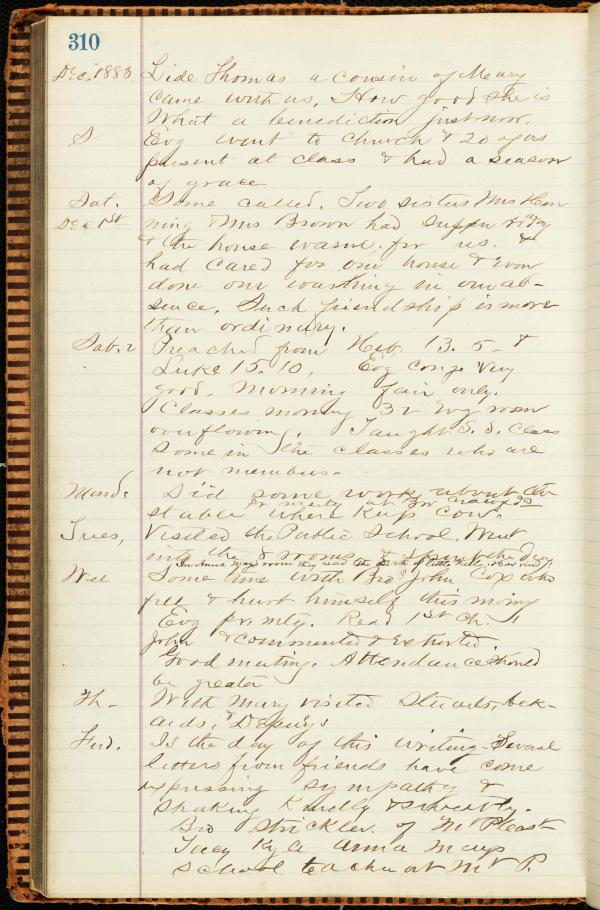 310
Dec. 1883. Lide Thomas a cousin of Mary
came with us. How good she is
What a benediction just now.
S Evg went to church & 20 of us
present at class & had a season
of grace
Sat. Some called. Two sisters Mrs Hen
Dec 1st ning & Mrs Brown had supper
& the house warm for us. &
had cared for our house & even
done our washing in our ab-
sence. Such friendship is more
than ordinary.
Sab. 2 Preached from Heb. 13. 5- &
Luke 15. 10. Evg cong. very
good, morning fair only.
Classes morning 32 Evg room
overflowing. Taught S. S. Class
Some in the classes who are
not members.
Mund. Did some work about the
Pr meeting at Bro
stable where keep cow.
Tues, Visited the Public School. Went
into the 8 rooms & spent the day
In Anna Mays room they read the Birth of little Nell.
Wed Some time with Bro John Cox who
fell & hurt himself this morning
Evg pr. mtg. Read 1st Ch. 1
John & commented & exhorted.
Good meeting. Attendance should
be greater
Th - With Mary visited Stuarts, Bek-
aids, & Depuys
Frid. Is the day of this writing. Several
letters from friends have come
expressing sympathy &
speaking kindly & sweetly.
Bro Strickler of Mt Pleast
Lucy Kyle Anna Mays
school teacher at Mt P.